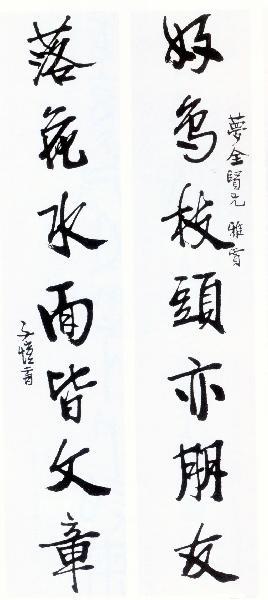 夢全賢兄 雅
好鳥枝頭亦朋友
落花水面皆文章
子愷書